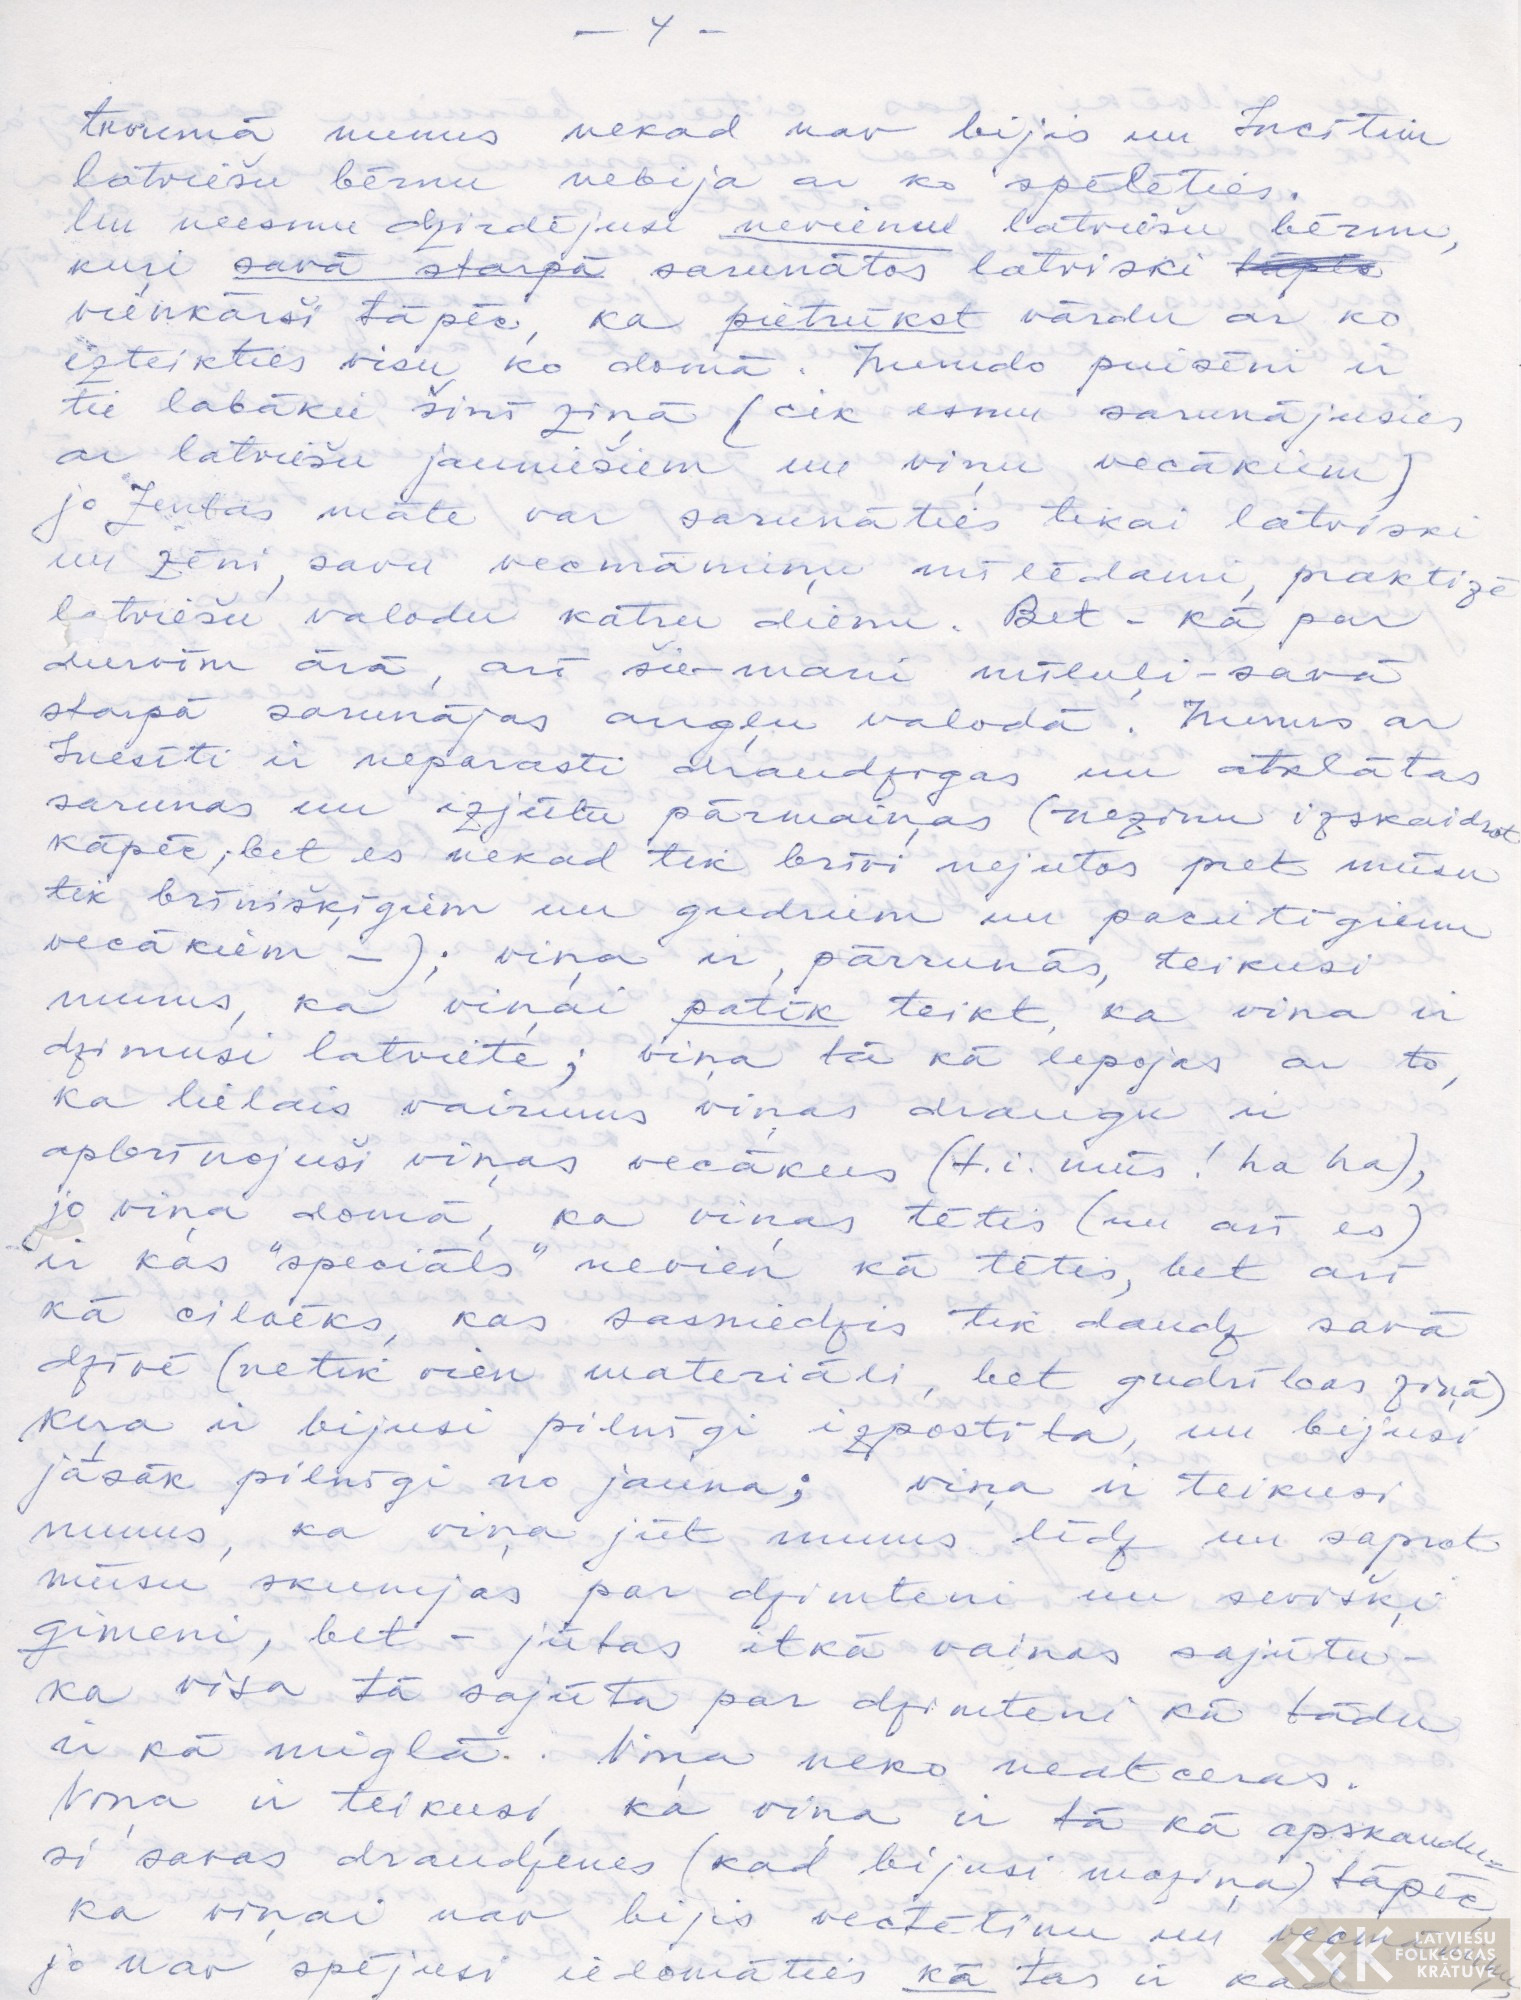 - 4 -
tuvumā mums nekad nav bijis un Inesītim
latviešu bērnu nebija ar ko spēlēties.
Un neesmu dzirdējusi nevienu latviešu bērnu,
kuŗi savā starpā sarunātos latviski
vienkārši tāpēc, ka pietrūkst vārdu ar ko
izteikties visu ko domā. Gunda puisēni ir
tie labākie šinī ziņā (cik esmu sarunājusies
ar latviešu jauniešiem un viņu vecākiem)
jo Zentas māte var sarunāties tikai latviski
un zēni, savu vecmāmiņu mīlēdami, praktizē
latviešu valodu katru dienu. Bet - kā par
durvīm ārā, arī šie mani mīluļi - savā
starpā sarunājas angļu valodā. Mums ar
Inesīti ir neparasti draudzīgas un atklātas
sarunas un izjūtu pārmaiņas (nezinu izskaidrot
kāpēc, bet es nekad tik brīvi nejutos pret mūsu
tik brīnišķīgiem un gudriem un pacietīgiem
vecākiem -); viņa ir, pārrunās, teikusi
mums, ka viņai patīk teikt, ka viņa ir
dzimusi latviete; viņa tā kā lepojas ar to,
ka lielais vairums viņas draugu ir
apbrīnojuši viņas vecākus (t.i. mūs! ha ha),
jo viņa domā, ka viņas tētis (un arī es)
ir kas "speciāls" nevien kā tētis, bet arī
kā cilvēks, kas sasniedzis tik daudz savā
dzīvē (netik vien materiāli, bet gudrības ziņā)
kuŗa ir bijusi pilnīgi izpostīta, un bijusi
jāsāk pilnīgi no jauna; viņa ir teikusi
mums, ka viņa jūt mums līdz un saprot
mūsu skumjas par dzimteni un sevišķi
ģimeni, bet - jūtas itkā vainas sajūtu -
ka visa tā sajūta par dzimteni kā tādu
ir kā miglā. Viņa neko neatceras.
Viņa ir teikusi, ka viņa ir tā kā apskaudu-
si savas draudzenes (kad bijusi maziņa) tāpēc,
ka viņai nav bijis vectētiņu un
jo nav spējusi iedomāties kā tas ir kad
LATVIEŠU
FOLKLORAS
KRĀTUVE